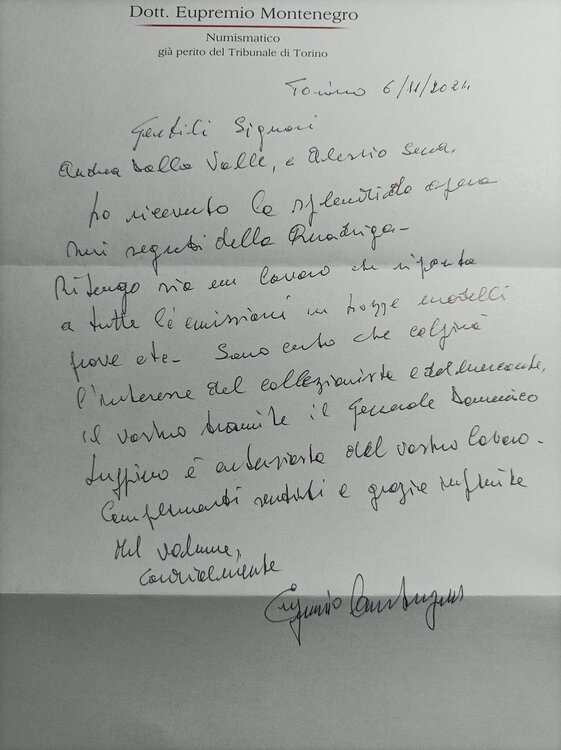 Dott. Eupremio Montenegro
Numismatico
già perito del Tribunale di Torino
Torino 6/11/2024
Gentili Signori
Andrea Dalla Valle, e Alessio Sena.
ho ricevuto la splendida opera
sui segreti della Quadriga-
Ritengo sia un lavoro che riporta
a tutte le emissioni in bozze modelli
prove etc- Sono certo che colpirà
l'interesse del collezionista e del mercante,
il vostro tramite il Generale Domenico
Luppino è entusiasta del vostro lavoro-
Complimenti sentiti e grazie infinite
del volume,
cordialmente
Eupremio Montenegro